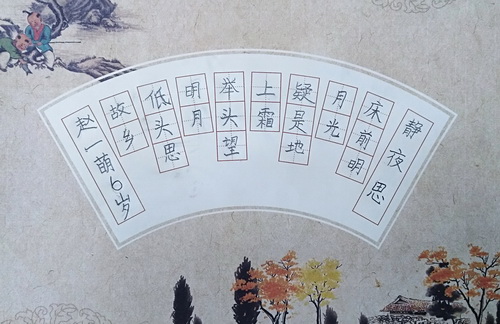 静夜思
床前明
月光
疑是地
上霜
举头望
明月
低头思
故乡
赵一萌6岁